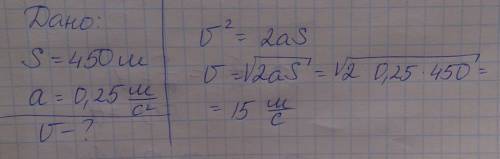 Дано:
S = 450 м
a = 0,25 м/с²
v - ?
v² = 2aS
v = √2aS = √2 0,25 · 450 =
= 15 м/с